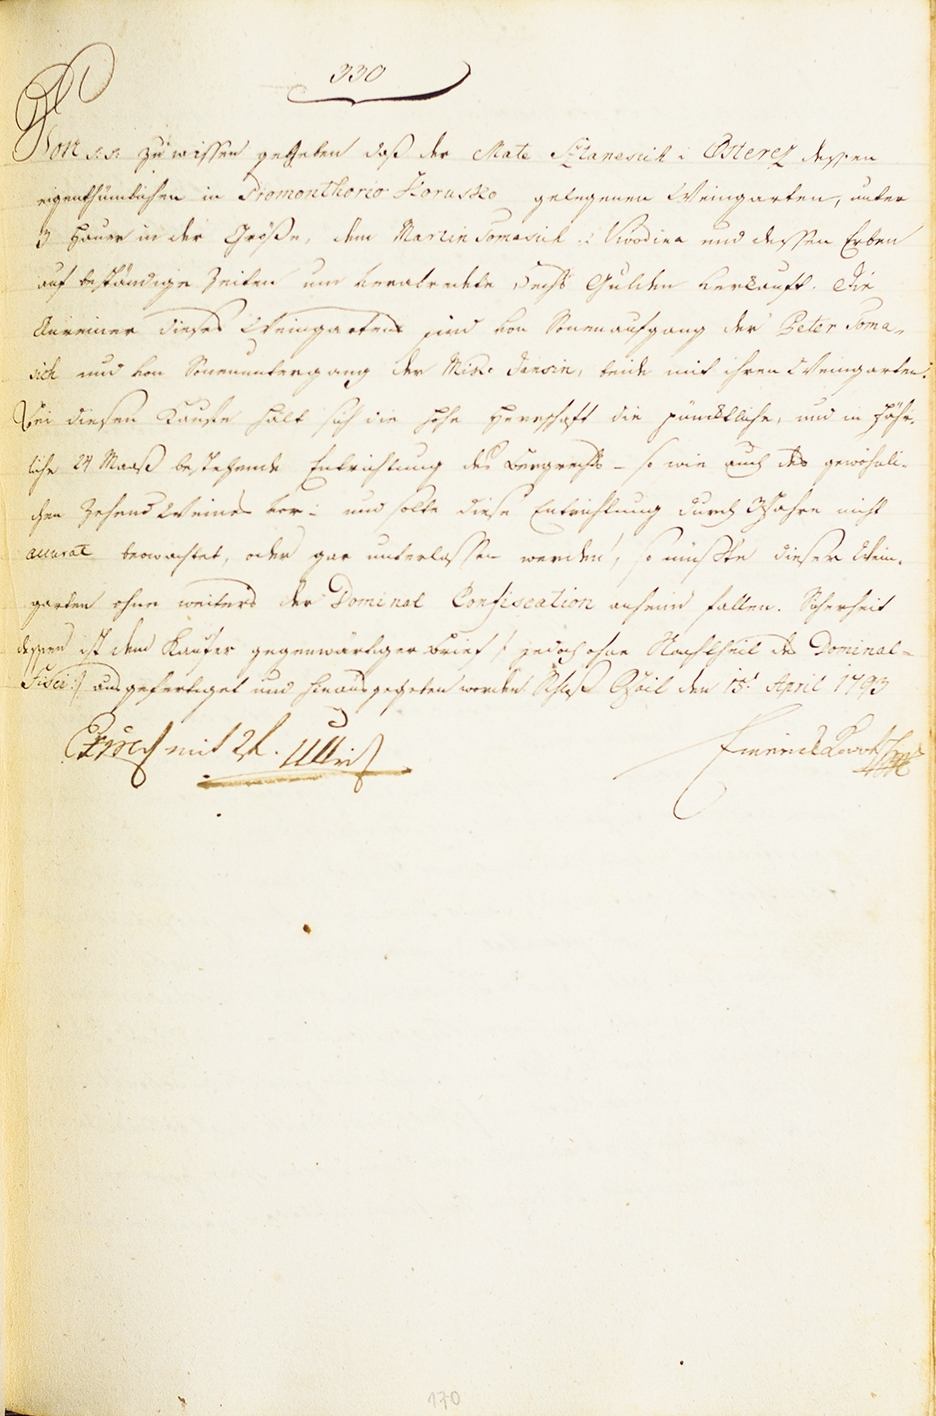 330
Von :/: zu wissen gegeben daß der Mate Szlanesich i Osterez dessen
eigenthümlichen in Promonthorio Korusko gelegenen Weingarten, unter
3 Hauer in der Größe, dem Martin Tomasich i Vivodina und dessen Erben
auf beständige Zeiten um verabredete sechs Gulden verkauft. Die
Anreiner dieses Weingartens sind von Sonenaufgang der Peter Toma-
sich und von Sonenuntergang der Miko Jansin, beide mit ihren Weingarten.
Bei diesen Kaufe halt sich die hohe Herrschaft die pünktliche, und in jähr-
liche 24 Maaß bestehende Entrichtung des Bergrechts – so wie auch des gewöhnli-
chen Zehend Weines vor: und sollte diese Entrichtung durch 3 Jahre nicht
accurat beobachtet, oder gar unterlassen werden, so müßte dieser Wein-
garten ohne weiters der Dominal Confiscation anheim fallen. Sicherheit
dessen ist dem Kaufer gegenwärtiger Brief /: jedoch ohne Nachtheil des Dominal-
Fisci :/ ausgefertiget und hinausgegeben worden Schloß den 15t April 1793
mit 2f.
Emerich
170